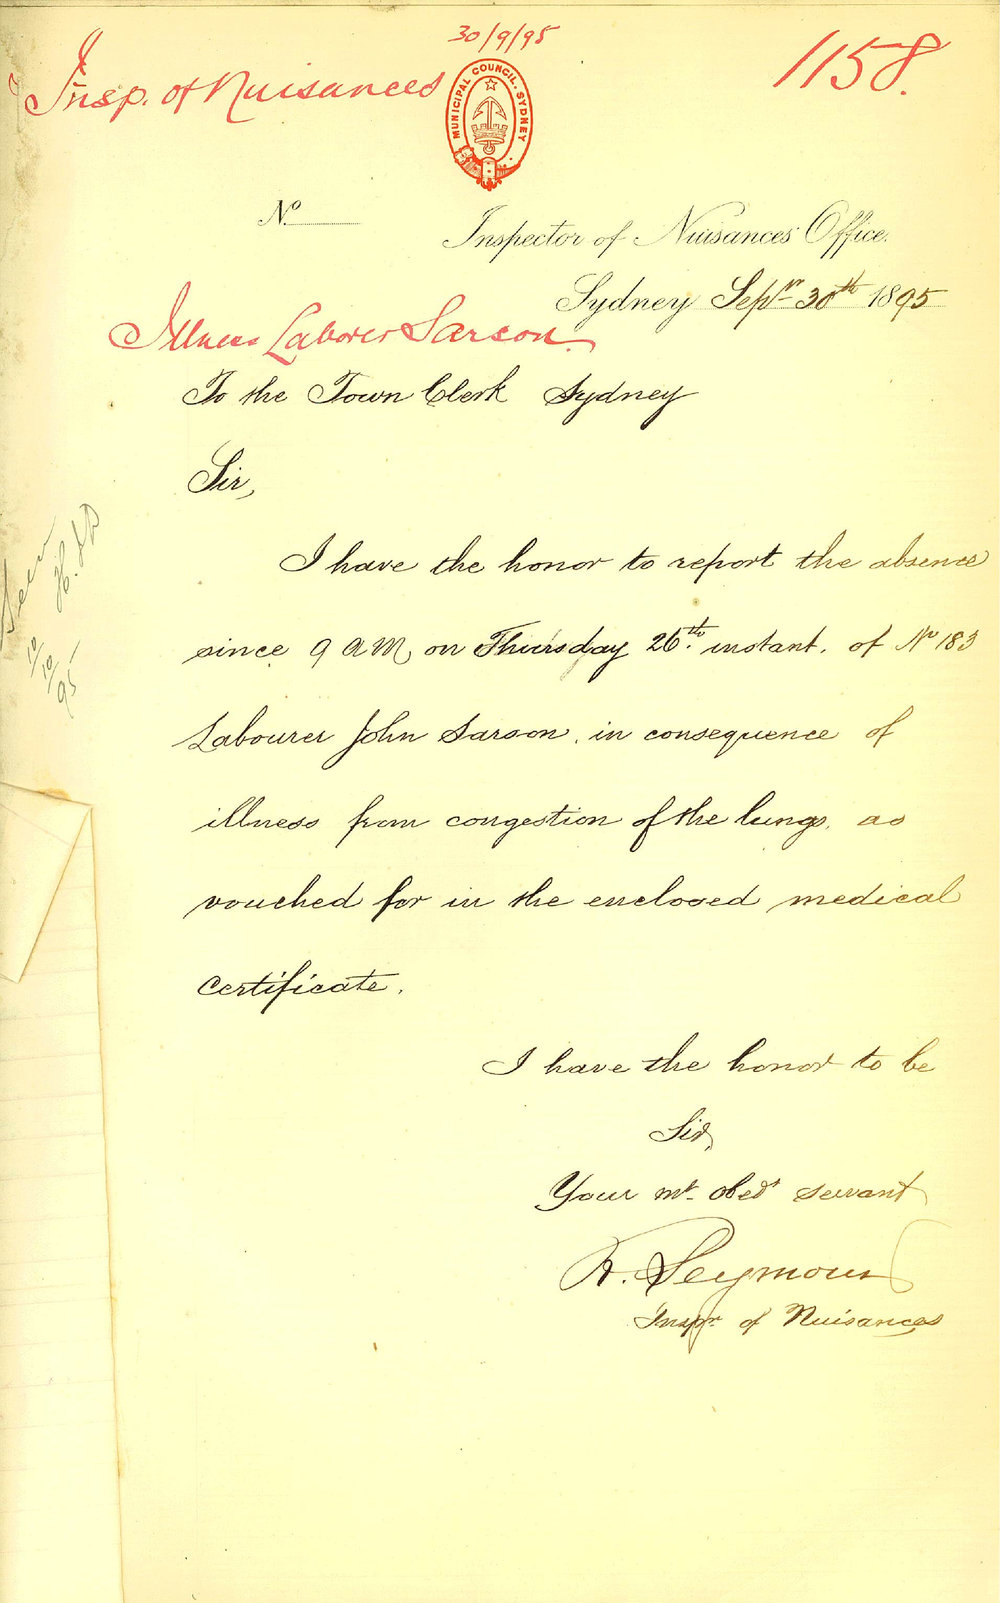 30/9/95
Insp. of Nuisances
1158.
MUNICIPAL COUNCIL. SYDNEY
No
Inspector of Nuisances Office.
Sydney Septr 30th 1895
Illness Laborer Sarson.
To the Town Clerk Sydney
Sir,
I have the honor to report the absence
since 9 AM, on Thursday 26th. instant, of No 183
Labourer John Sarson, in consequence of
illness from congestion of the lungs, as
vouched for in the enclosed medical
certificate.
I have the honor to be
Sir,
Your mt. obedt servant
R. Seymour
Inspr. of Nuisances
Seen
10/10/95